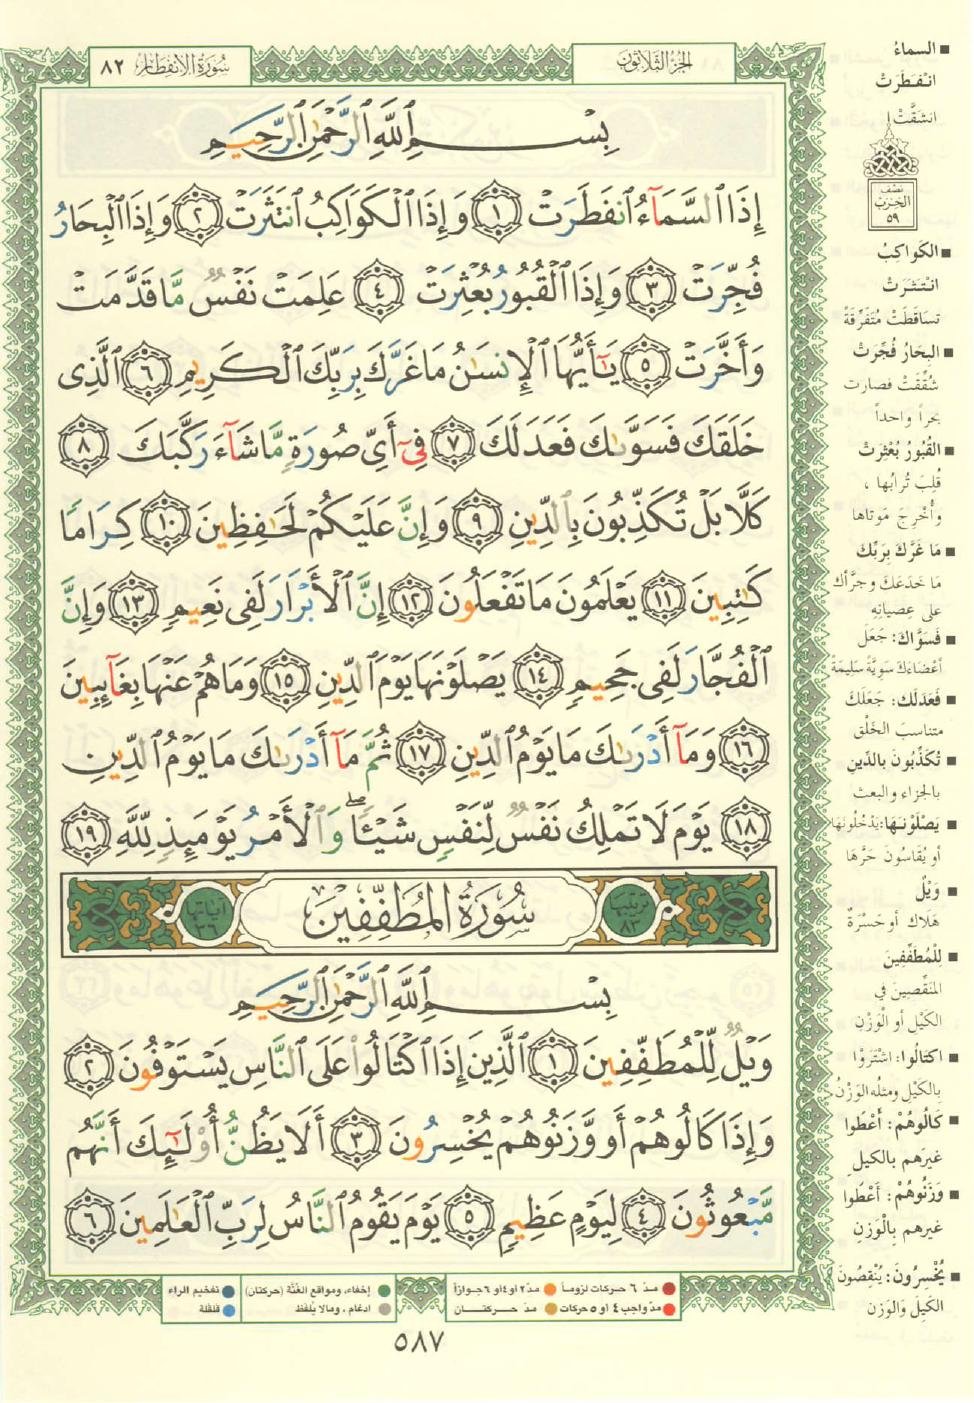 سُورَةُ الِانفِطَارِ ٨٢
الجُزْءُ الثَّلَاثُونَ
بِسْمِ ٱللَّهِ ٱلرَّحْمَٰنِ ٱلرَّحِيمِ
إِذَا ٱلسَّمَآءُ ٱنفَطَرَتْ ١ وَإِذَا ٱلْكَوَاكِبُ ٱنتَثَرَتْ ٢ وَإِذَا ٱلْبِحَارُ
فُجِّرَتْ ٣ وَإِذَا ٱلْقُبُورُ بُعْثِرَتْ ٤ عَلِمَتْ نَفْسٌ مَّا قَدَّمَتْ
وَأَخَّرَتْ ٥ يَٰٓأَيُّهَا ٱلْإِنسَٰنُ مَا غَرَّكَ بِرَبِّكَ ٱلْكَرِيمِ ٦ ٱلَّذِى
خَلَقَكَ فَسَوَّىٰكَ فَعَدَلَكَ ٧ فِىٓ أَىِّ صُورَةٍ مَّا شَآءَ رَكَّبَكَ ٨
كَلَّا بَلْ تُكَذِّبُونَ بِٱلدِّينِ ٩ وَإِنَّ عَلَيْكُمْ لَحَٰفِظِينَ ١٠ كِرَامًا
كَٰتِبِينَ ١١ يَعْلَمُونَ مَا تَفْعَلُونَ ١٢ إِنَّ ٱلْأَبْرَارَ لَفِى نَعِيمٍ ١٣ وَإِنَّ
ٱلْفُجَّارَ لَفِى جَحِيمٍ ١٤ يَصْلَوْنَهَا يَوْمَ ٱلدِّينِ ١٥ وَمَا هُمْ عَنْهَا بِغَآئِبِينَ
١٦ وَمَآ أَدْرَىٰكَ مَا يَوْمُ ٱلدِّينِ ١٧ ثُمَّ مَآ أَدْرَىٰكَ مَا يَوْمُ ٱلدِّينِ
١٨ يَوْمَ لَا تَمْلِكُ نَفْسٌ لِّنَفْسٍ شَيْـًٔا ۖ وَٱلْأَمْرُ يَوْمَئِذٍ لِّلَّهِ ١٩
ترتيبها ٨٣ سُورَةُ المُطَفِّفِينَ آياتها ٣٦
بِسْمِ ٱللَّهِ ٱلرَّحْمَٰنِ ٱلرَّحِيمِ
وَيْلٌ لِّلْمُطَفِّفِينَ ١ ٱلَّذِينَ إِذَا ٱكْتَالُوا۟ عَلَى ٱلنَّاسِ يَسْتَوْفُونَ ٢
وَإِذَا كَالُوهُمْ أَو وَّزَنُوهُمْ يُخْسِرُونَ ٣ أَلَا يَظُنُّ أُو۟لَٰٓئِكَ أَنَّهُم
مَّبْعُوثُونَ ٤ لِيَوْمٍ عَظِيمٍ ٥ يَوْمَ يَقُومُ ٱلنَّاسُ لِرَبِّ ٱلْعَٰلَمِينَ ٦
■ السماءُ
انْفَطَرَتْ
انشَقَّتْ
نصف
الحزب
٥٩
■ الكَواكبُ
انْتَثرَتْ
تسَاقَطَتْ مُتَفَرِّقةً
■ البِحَارُ فُجِّرَتْ
شُقِّقَتْ فصارت
بحراً واحداً
■ القُبُورُ بُعْثِرَتْ
قُلِبَ تُرابُها ،
وأُخْرِجَ مَوتاها
■ مَا غَرَّكَ بِرَبِّكَ
مَا خَدَعَكَ وجرَّأك
على عِصيانِهِ
■ فَسَوَّاكَ: جَعَلَ
أعْضاءَكَ سَوِيَّةً سَليمَةً
■ فَعَدَلَك: جَعَلَكَ
متناسبَ الخَلْق
■ تُكَذِّبُونَ بالدِّينِ
بالجزاء والبعث
■ يَصْلَوْنَهَا: يَدْخُلُونَهَا
أو يُقَاسُونَ حَرَّهَا
■ وَيْلٌ
هَلَاك أو حَسْرَة
■ لِلْمُطَفِّفِينَ
المُنَقِّصِينَ في
الكَيْلِ أو الْوَزْنِ
■ اكتالُوا: اشْتَرَوْا
بالكَيْلِ ومثلُه الوَزْنُ
■ كَالُوهُمْ: أَعْطَوا
غيرَهم بالكيلِ
■ وَزَنُوهُمْ: أَعْطَوا
غيرهم بِالْوَزنِ
■ يُخْسِرُونَ: يُنْقِصُونَ
الكَيلَ وَالوَزن
مدّ ٦ حركات لزوماً
مدّ ٢ أو ٤ أو ٦ جوازاً
مدّ واجب ٤ أو ٥ حركات
مدّ حركتان
إخفاء، ومواقع الغُنَّة (حركتان)
ادغام ، ومالا يُلفظ
تفخيم الراء
قلقلة
٥٨٧